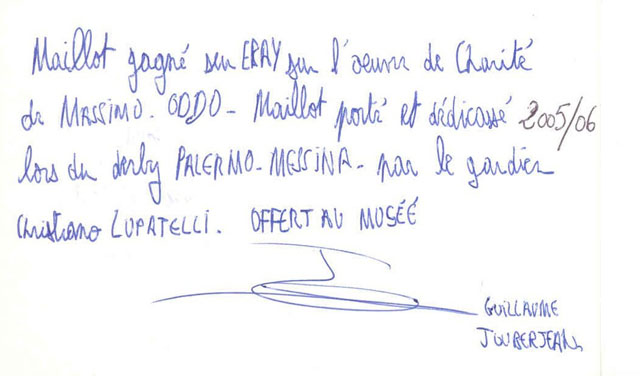 Maillot gagné sur EBAY sur l'oeuvre de Charité
de MASSIMO. ODDO - Maillot porté et dédicassé 2005/06
lors du derby PALERMO - MESSINA - par le gardien
Christiano LUPATELLI. OFFERT AU MUSÉÉ
GUILLAUME
JOUBERJEAN